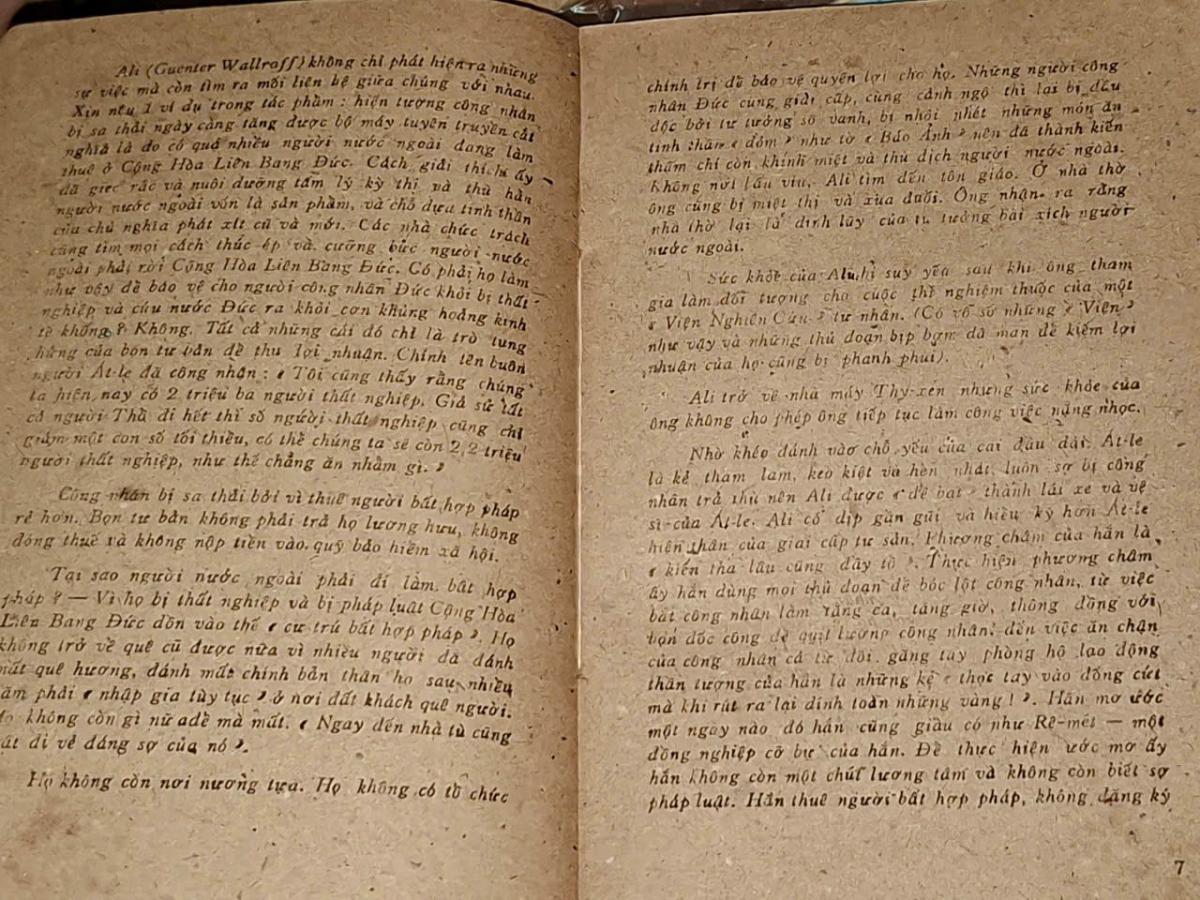 Ali (Guenter Wallraff) không chỉ phát hiện ra những
sự việc mà còn tìm ra mối liên hệ giữa chúng với nhau.
Xin nêu 1 ví dụ trong tác phầm : hiện tượng công nhân
bị sa thải ngày càng tăng được bộ máy tuyên truyền cắt
nghĩa là do có quá nhiều người nước ngoài đang làm
thuê ở Cộng Hòa Liên Bang Đức. Cách giải thích ấy
đã gieo rắc và nuôi dưỡng tâm lý kỳ thị và thù hằn
người nước ngoài vốn là sản phầm, và chỗ dựa tinh thần
của chủ nghĩa phát xít cũ và mới. Các nhà chức trách
cũng tìm mọi cách thúc ép và cưỡng bức người nước
ngoài phải rời Cộng Hòa Liên Bang Đức. Có phải họ làm
như vậy đề bảo vệ cho người công nhân Đức khỏi bị thất
nghiệp và cứu nước Đức ra khỏi cơn khủng hoảng kinh
tế không ? Không. Tất cả những cái đó chỉ là trò tung
hứng của bọn tư bản đề thu lợi nhuận. Chính tên buôn
người Át-le đã công nhận : « Tôi cũng thấy rằng chúng
ta hiện nay có 2 triệu ba người thất nghiệp. Giả sử tất
cả người Thồ đi hết thì số người thất nghiệp cũng chỉ
giảm một con số tối thiều, có thề chúng ta sẽ còn 2,2 triệu
người thất nghiệp, như thế chẳng ăn nhằm gì. »
Công nhân bị sa thải bởi vì thuê người bất hợp pháp
rẻ hơn. Bọn tư bản không phải trả họ lương hưu, không
đóng thuế và không nộp tiền vào quỹ bảo hiềm xã hội.
Tại sao người nước ngoài phải đi làm bất hợp
pháp ? — Vì họ bị thất nghiệp và bị pháp luật Cộng Hòa
Liên Bang Đức dồn vào thế « cư trú bất hợp pháp ». Họ
không trở về quê cũ được nữa vì nhiều người đã đánh
mất quê hương, đánh mất chính bản thân họ sau nhiều
năm phải « nhập gia tùy tục » ở nơi đất khách quê người.
Họ không còn gì nữ adề mà mất. « Ngay đến nhà tù cũng
mất đi vẻ đáng sợ của nó ».
Họ không còn nơi nương tựa. Họ không có tồ chức
chính trị đề bảo vệ quyền lợi cho họ. Những người công
nhân Đức cùng giai cấp, cùng cảnh ngộ thì lại bị đầu
độc bởi tư tưởng sô vanh, bị nhồi nhét những món ăn
tinh thần « dỏm » như tờ « Báo Ảnh » nên đã thành kiến
thậm chí còn khinh miệt và thù địch người nước ngoài.
Không nơi lấu víu, Ali tìm đến tôn giáo. Ở nhà thờ
ông cũng bị miệt thị và xua đuổi. Ông nhận ra rằng
nhà thờ lại là dinh lũy của tư tưởng bài xích người
nước ngoài.
Sức khỏe của Ali bị suy yếu sau khi ông tham
gia làm đối tượng cho cuộc thí nghiệm thuốc của một
« Viện Nghiên Cứu » tư nhân. (Có vô số những « Viện »
như vậy và những thủ đoạn bịp bợm dã man đề kiếm lợi
nhuận của họ cũng bị phanh phui).
Ali trở về nhà máy Thy-xen nhưng sức khỏe của
ông không cho phép ông tiếp tục làm công việc nặng nhọc.
Nhờ khéo đánh vào chỗ yếu của cai đầu dài Át-le
là kẻ tham lam, keo kiệt và hèn nhát, luôn sợ bị công
nhân trả thù nên Ali được « đề bạt » thành lái xe và vệ
sĩ của Át-le. Ali có dịp gần gũi và hiều kỹ hơn Át-le
hiện thân của giai cấp tư sản. Phương châm của hắn là
« kiến tha lâu cũng đầy tồ ». Thực hiện phương châm
ấy hắn dùng mọi thủ đoạn đề bóc lột công nhân, từ việc
bắt công nhân làm tăng ca, tăng giờ, thông đồng với
bọn đốc công đề quịt lương công nhân đến việc ăn chặn
của công nhân cả từ đôi găng tay phòng hộ lao động
thần tượng của hắn là những kẻ « thọc tay vào đống cứt
mà khi rút ra lại dính toàn những vàng ! ». Hắn mơ ước
một ngày nào đó hắn cũng giầu có như Rê-mét — một
đồng nghiệp cỡ bự của hắn. Đề thực hiện ước mơ ấy
hắn không còn một chút lương tâm và không còn biết sợ
pháp luật. Hắn thuê người bất hợp pháp, không đăng ký
7